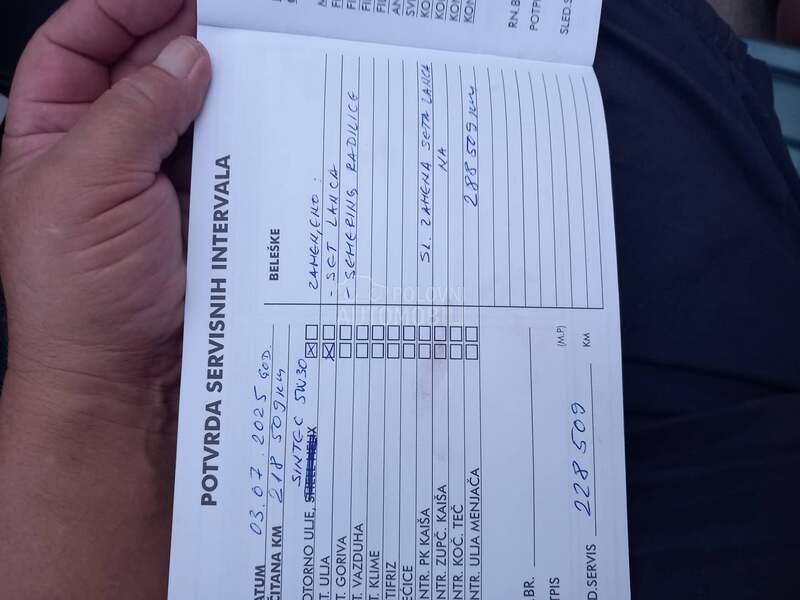 RN.B
POTPI
SLED.S
POTVRDA SERVISNIH INTERVALA
ATUM 03.07.2025 GOD.
ČITANA KM 218 509 KM
SINTEC 5W30
OTORNO ULJE,
T. ULJA
T. GORIVA
T. VAZDUHA
T. KLIME
TIFRIZ
EĆICE
NTR. PK KAIŠA
NTR. ZUPČ. KAIŠA
NTR. KOČ. TEČ
NTR. ULJA MENJAČA
BELEŠKE
ZAMENJENO:
- SET LANCA
- SEMERING RADILICE
SL. ZAMENA SETA LANCA
NA
288 509 KM
.BR.
TPIS (M.P)
D.SERVIS 228 509 KM
POLOVNI
AUTOMOBILI